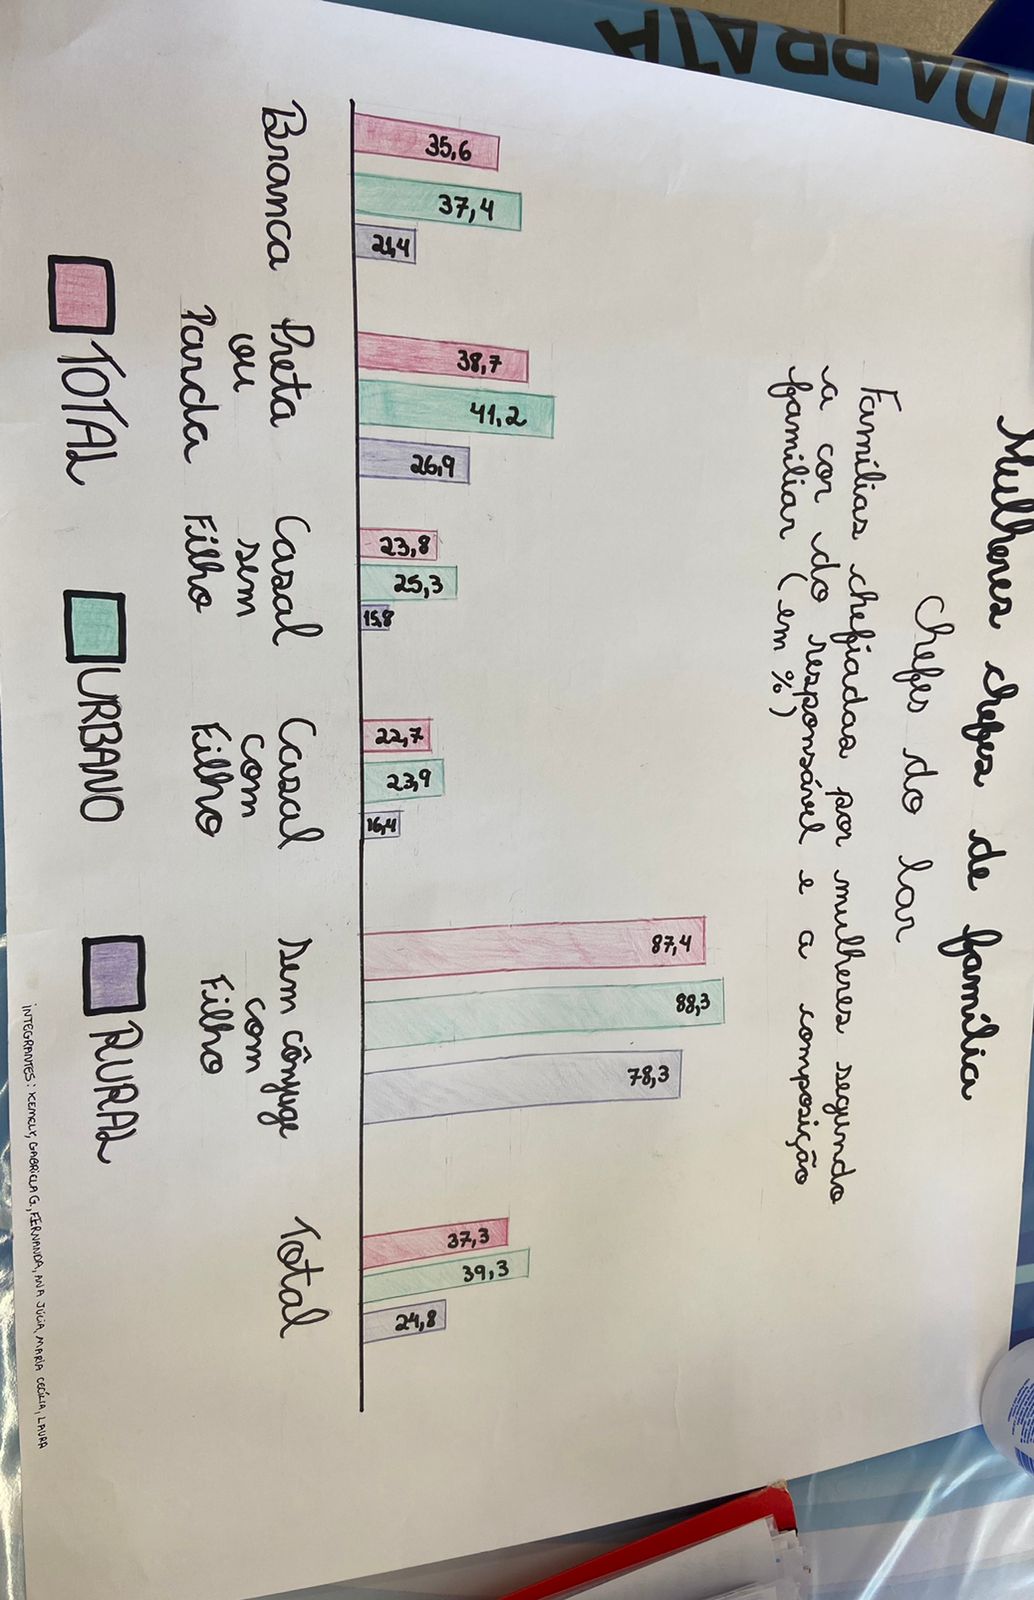 DA PRATA
Mulheres chefes de família
Chefes do lar
Famílias chefiadas por mulheres segundo
a cor do responsável e a composição
familiar (em %)
35,6 37,4 21,4
38,7 41,2 26,9
23,8 25,3 15,8
22,7 23,9 16,4
87,4 88,3 78,3
37,3 39,3 24,8
Branca
Preta
ou
Parda
Casal
sem
Filho
Casal
com
Filho
Sem cônjuge
com
Filho
Total
TOTAL URBANO RURAL
INTEGRANTES: KEMELY, GABRIELA G, FERNANDA, ANA JÚLIA, MARIA CECÍLIA, LAURA